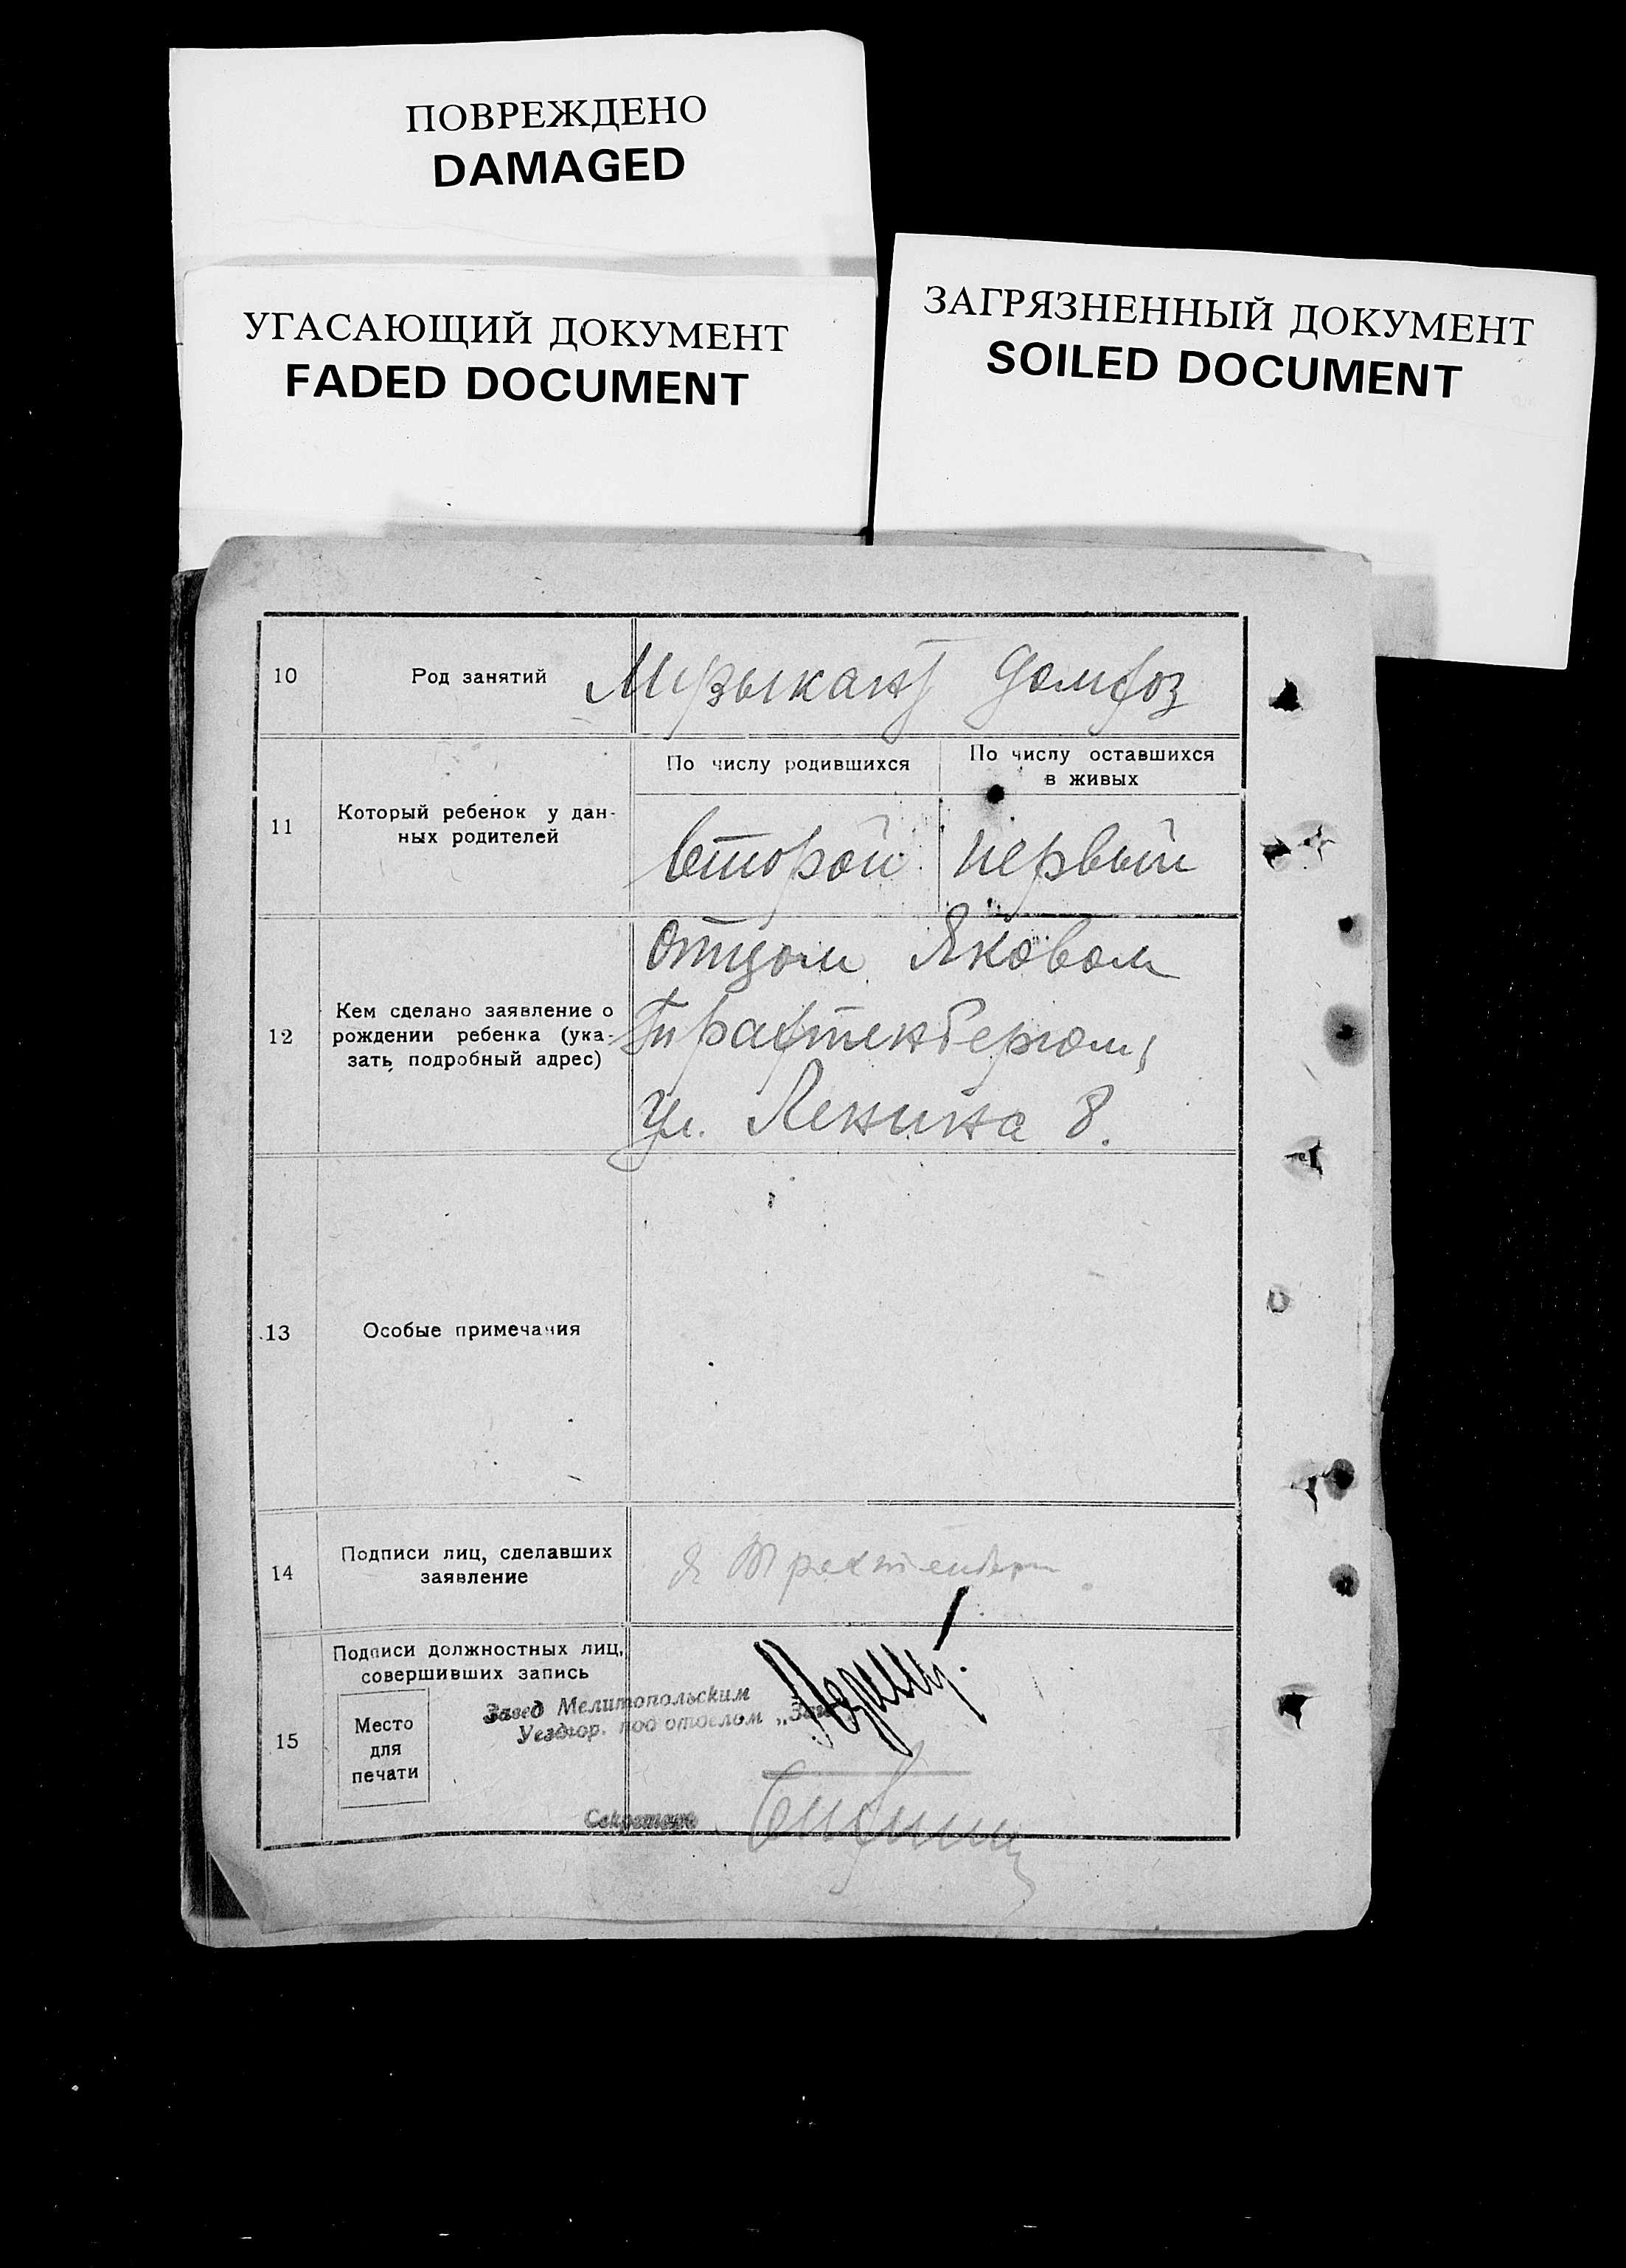 ПОВРЕЖДЕНО
DAMAGED
УГАСАЮЩИЙ ДОКУМЕНТ
FADED DOCUMENT
ЗАГРЯЗНЕННЫЙ ДОКУМЕНТ
SOILED DOCUMENT
10
Род занятий
Музыкант домхоз
11
Который ребенок у дан-
ных родителей
По числу родившихся
второй
По числу оставшихся
в живых
первый
12
Кем сделано заявление о
рождении ребенка (ука-
зать подробный адрес)
Отцом Яковом
Трахтенбергом,
ул. Ленина 8.
13
Особые примечания
14
Подписи лиц, сделавших
заявление
Я Трахтенберг
15
Подписи должностных лиц,
совершивших запись
Место
для
печати
Завед Мелитопольским
под отделом „Загс"
Секретарь